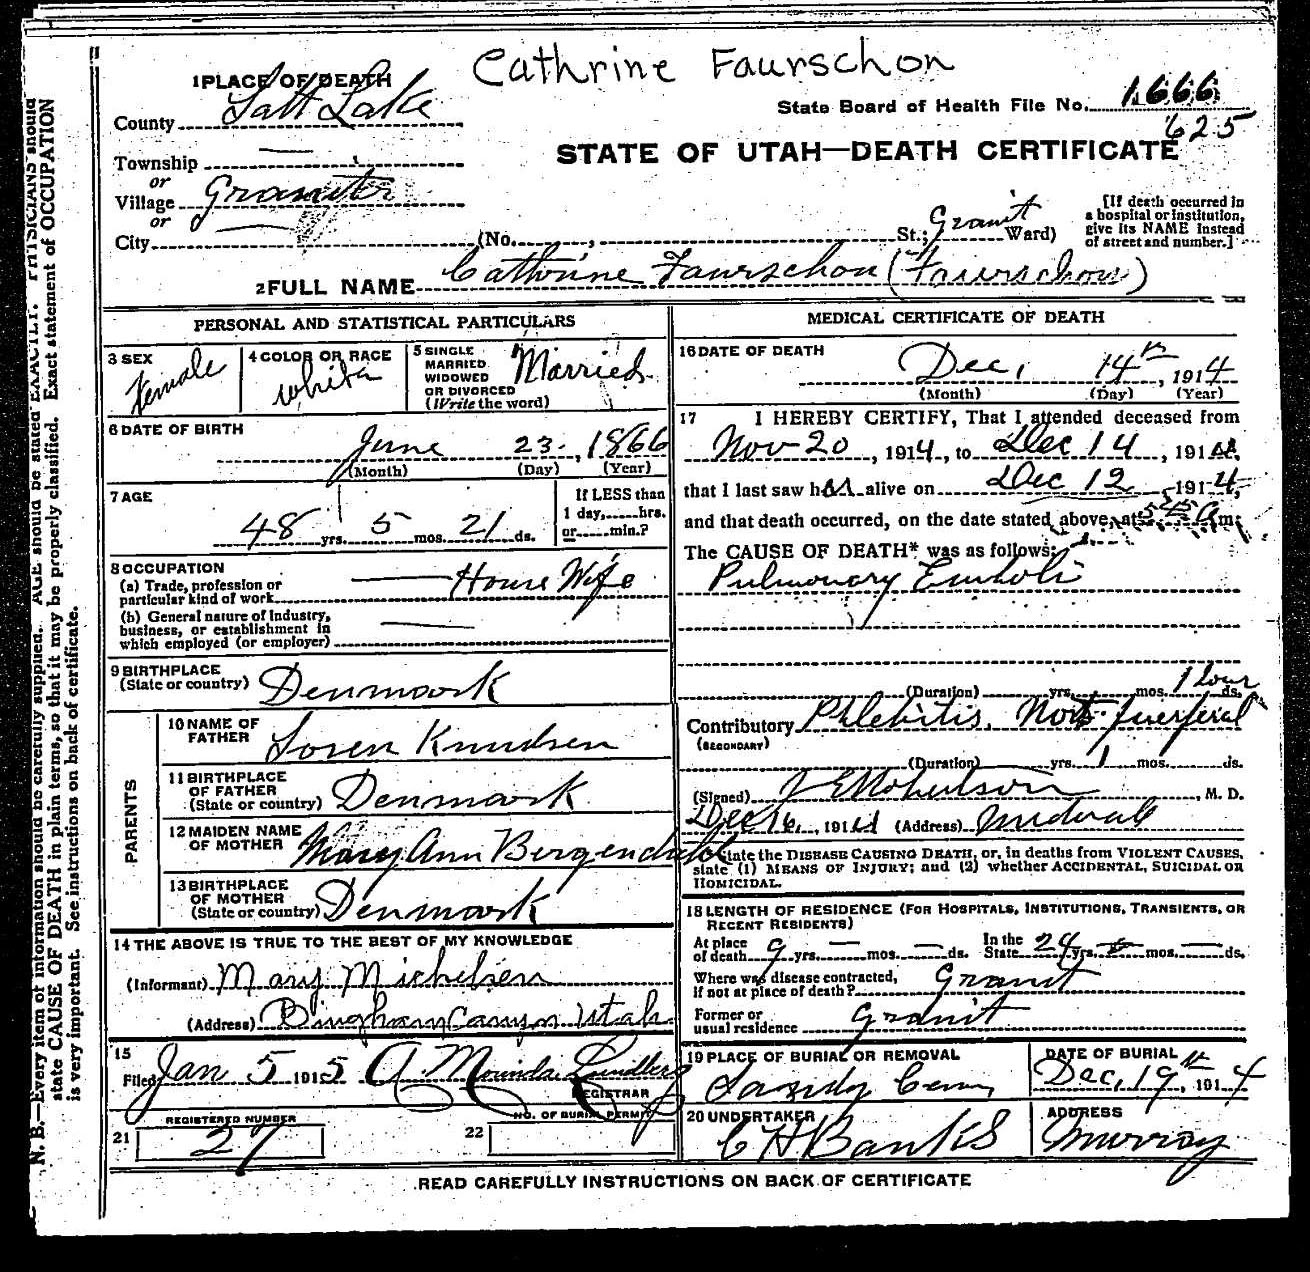 Cathrine Faurschon
1 PLACE OF DEATH
State Board of Health File No. 1666
625
County Salt Lake
STATE OF UTAH—DEATH CERTIFICATE
Township —
or
Village Granite
or
City — (No. , St.; Granit Ward)
[If death occurred in
a hospital or institution,
give its NAME instead
of street and number.]
2 FULL NAME Cathrine Faurschon (Faurschon)
PERSONAL AND STATISTICAL PARTICULARS
3 SEX
Female
4 COLOR OR RACE
White
5 SINGLE
MARRIED
WIDOWED
OR DIVORCED
(Write the word)
Married
6 DATE OF BIRTH
June 23, 1866
(Month) (Day) (Year)
7 AGE
48 yrs. 5 mos. 21 ds.
If LESS than
1 day, hrs.
or min.?
8 OCCUPATION
(a) Trade, profession or
particular kind of work House Wife
(b) General nature of Industry,
business, or establishment in
which employed (or employer)
9 BIRTHPLACE
(State or country) Denmark
PARENTS
10 NAME OF
FATHER Soren Knudsen
11 BIRTHPLACE
OF FATHER
(State or country) Denmark
12 MAIDEN NAME
OF MOTHER Mary Ann Bergendahl
13 BIRTHPLACE
OF MOTHER
(State or country) Denmark
14 THE ABOVE IS TRUE TO THE BEST OF MY KNOWLEDGE
(Informant) Mary Michelsen
(Address) Bingham Canyon Utah
15
Filed Jan 5 1915 A
REGISTRAR
REGISTERED NUMBER
21 27
NO. OF BURIAL PERMIT
22
MEDICAL CERTIFICATE OF DEATH
16 DATE OF DEATH
Dec, 14th, 1914
(Month) (Day) (Year)
17 I HEREBY CERTIFY, That I attended deceased from
Nov 20, 1914, to Dec 14, 1914,
that I last saw her alive on Dec 12, 1914,
and that death occurred, on the date stated above, at 545 a m.
The CAUSE OF DEATH* was as follows:
Pulmonary Emboli
(Duration) yrs. mos. 1 hour ds.
Contributory Phlebitis, Not puerperal
(SECONDARY)
(Duration) yrs. 1 mos. ds.
(Signed) , M. D.
Dec 16, 1914 (Address) Midvale
* State the DISEASE CAUSING DEATH, or, in deaths from VIOLENT CAUSES,
state (1) MEANS OF INJURY; and (2) whether ACCIDENTAL, SUICIDAL OR
HOMICIDAL.
18 LENGTH OF RESIDENCE (FOR HOSPITALS, INSTITUTIONS, TRANSIENTS, OR
RECENT RESIDENTS)
At place
of death 9 yrs. — mos. — ds. In the
State 24 yrs. mos. — ds.
Where was disease contracted,
if not at place of death? Granit
Former or
usual residence Granit
19 PLACE OF BURIAL OR REMOVAL
Sandy Cem,
DATE OF BURIAL
Dec, 19th, 1914
20 UNDERTAKER
C H Banks
ADDRESS
Murray
READ CAREFULLY INSTRUCTIONS ON BACK OF CERTIFICATE
N. B.—Every item of information should be carefully supplied. AGE should be stated EXACTLY. PHYSICIANS should
state CAUSE OF DEATH in plain terms, so that it may be properly classified. Exact statement of OCCUPATION
is very important. See instructions on back of certificate.